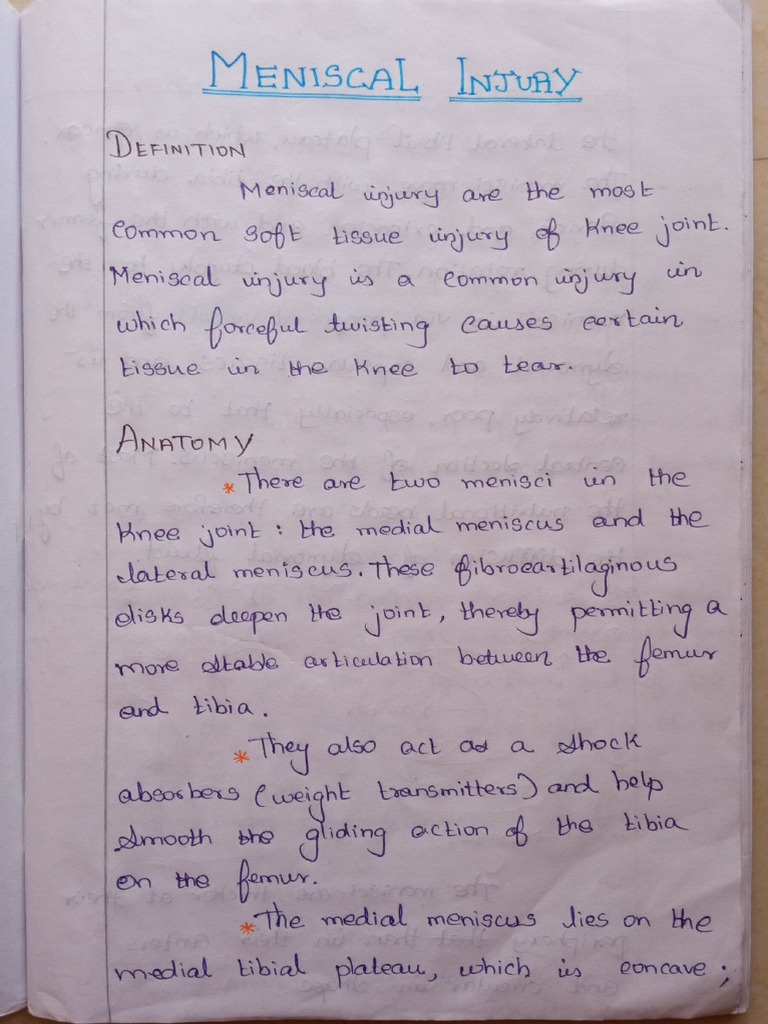 MENISCAL INJURY
DEFINITION
Meniscal injury are the most
common soft tissue injury of Knee joint.
Meniscal injury is a common injury in
which forceful twisting causes certain
tissue in the Knee to tear.
ANATOMY
* There are two menisci in the
Knee joint : the medial meniscus and the
lateral meniscus. These fibrocartilaginous
disks deepen the joint, thereby permitting a
more stable articulation between the femur
and tibia.
* They also act as a shock
absorbers (weight transmitters) and help
smooth the gliding action of the tibia
on the femur.
* The medial meniscus lies on the
medial tibial plateau, which is concave ;